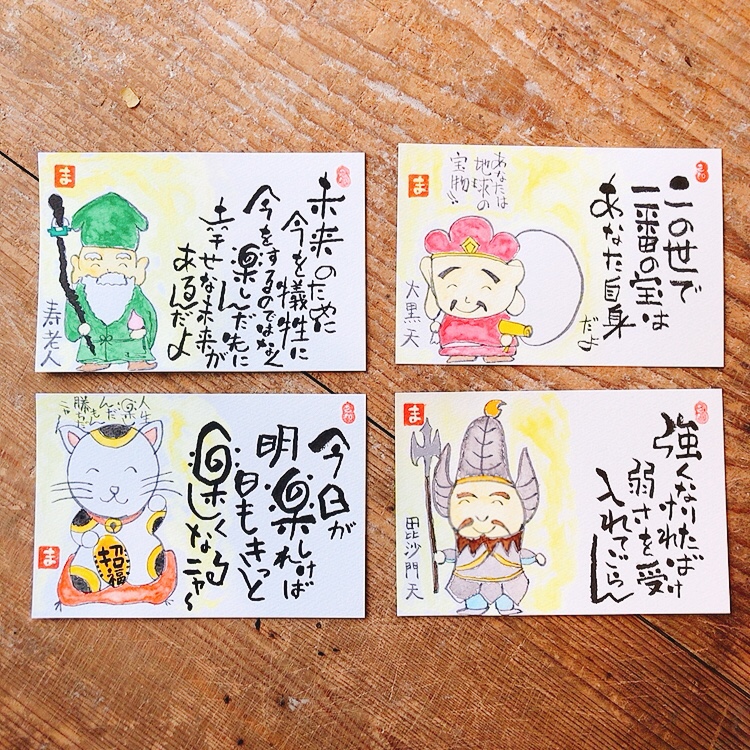 未来のために
今を犠牲に
するのではなく
今を楽しんだ先に
幸せな未来が
あるんだよ
寿老人
ま
この世で
一番の宝は
あなた自身
だよ
あなたは
地球の
宝物!!
大黒天
ま
今日が
楽しければ
明日もきっと
楽しく
なるニャ〜
人生
楽し
んだ
もん
勝ち
招福
ま
強くなりたければ
弱さを受け
入れてごらん
毘沙門天
ま